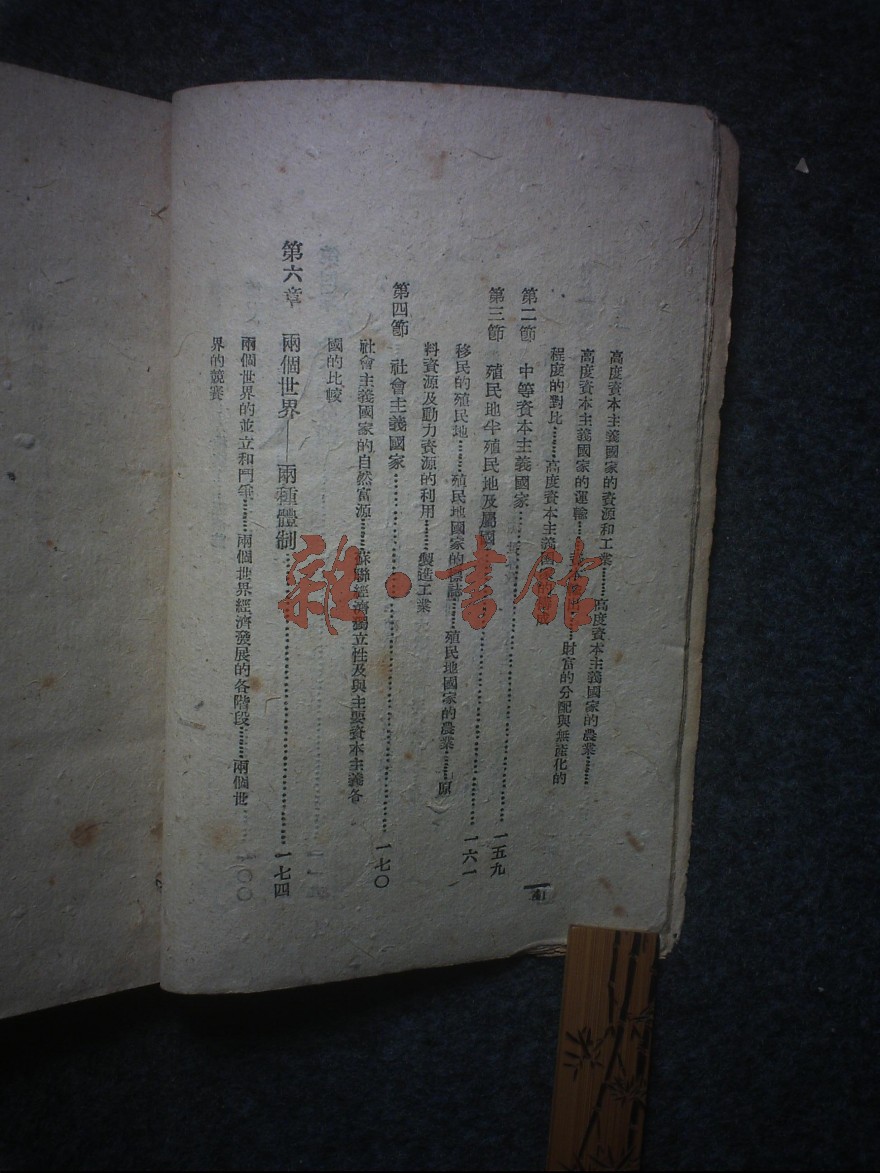 高度資本主義國家的資源和工業………高度資本主義國家的農業………
高度資本主義國家的運輸………………財富的分配與無產化的
程度的對比………高度資本主義國
第二節 中等資本主義國家…………………………一五九
第三節 殖民地半殖民地及屬國…………………………一六一
移民的殖民地………殖民地國家的標誌………殖民地國家的農業………原
料資源及動力資源的利用………製造工業
第四節 社會主義國家…………………………一七〇
社會主義國家的自然富源………蘇聯經濟獨立性及與主要資本主義各
國的比較
第六章 兩個世界——兩種體制…………………………一七四
兩個世界的並立和鬥爭………兩個世界經濟發展的各階段………兩個世
界的競賽
雜·書館